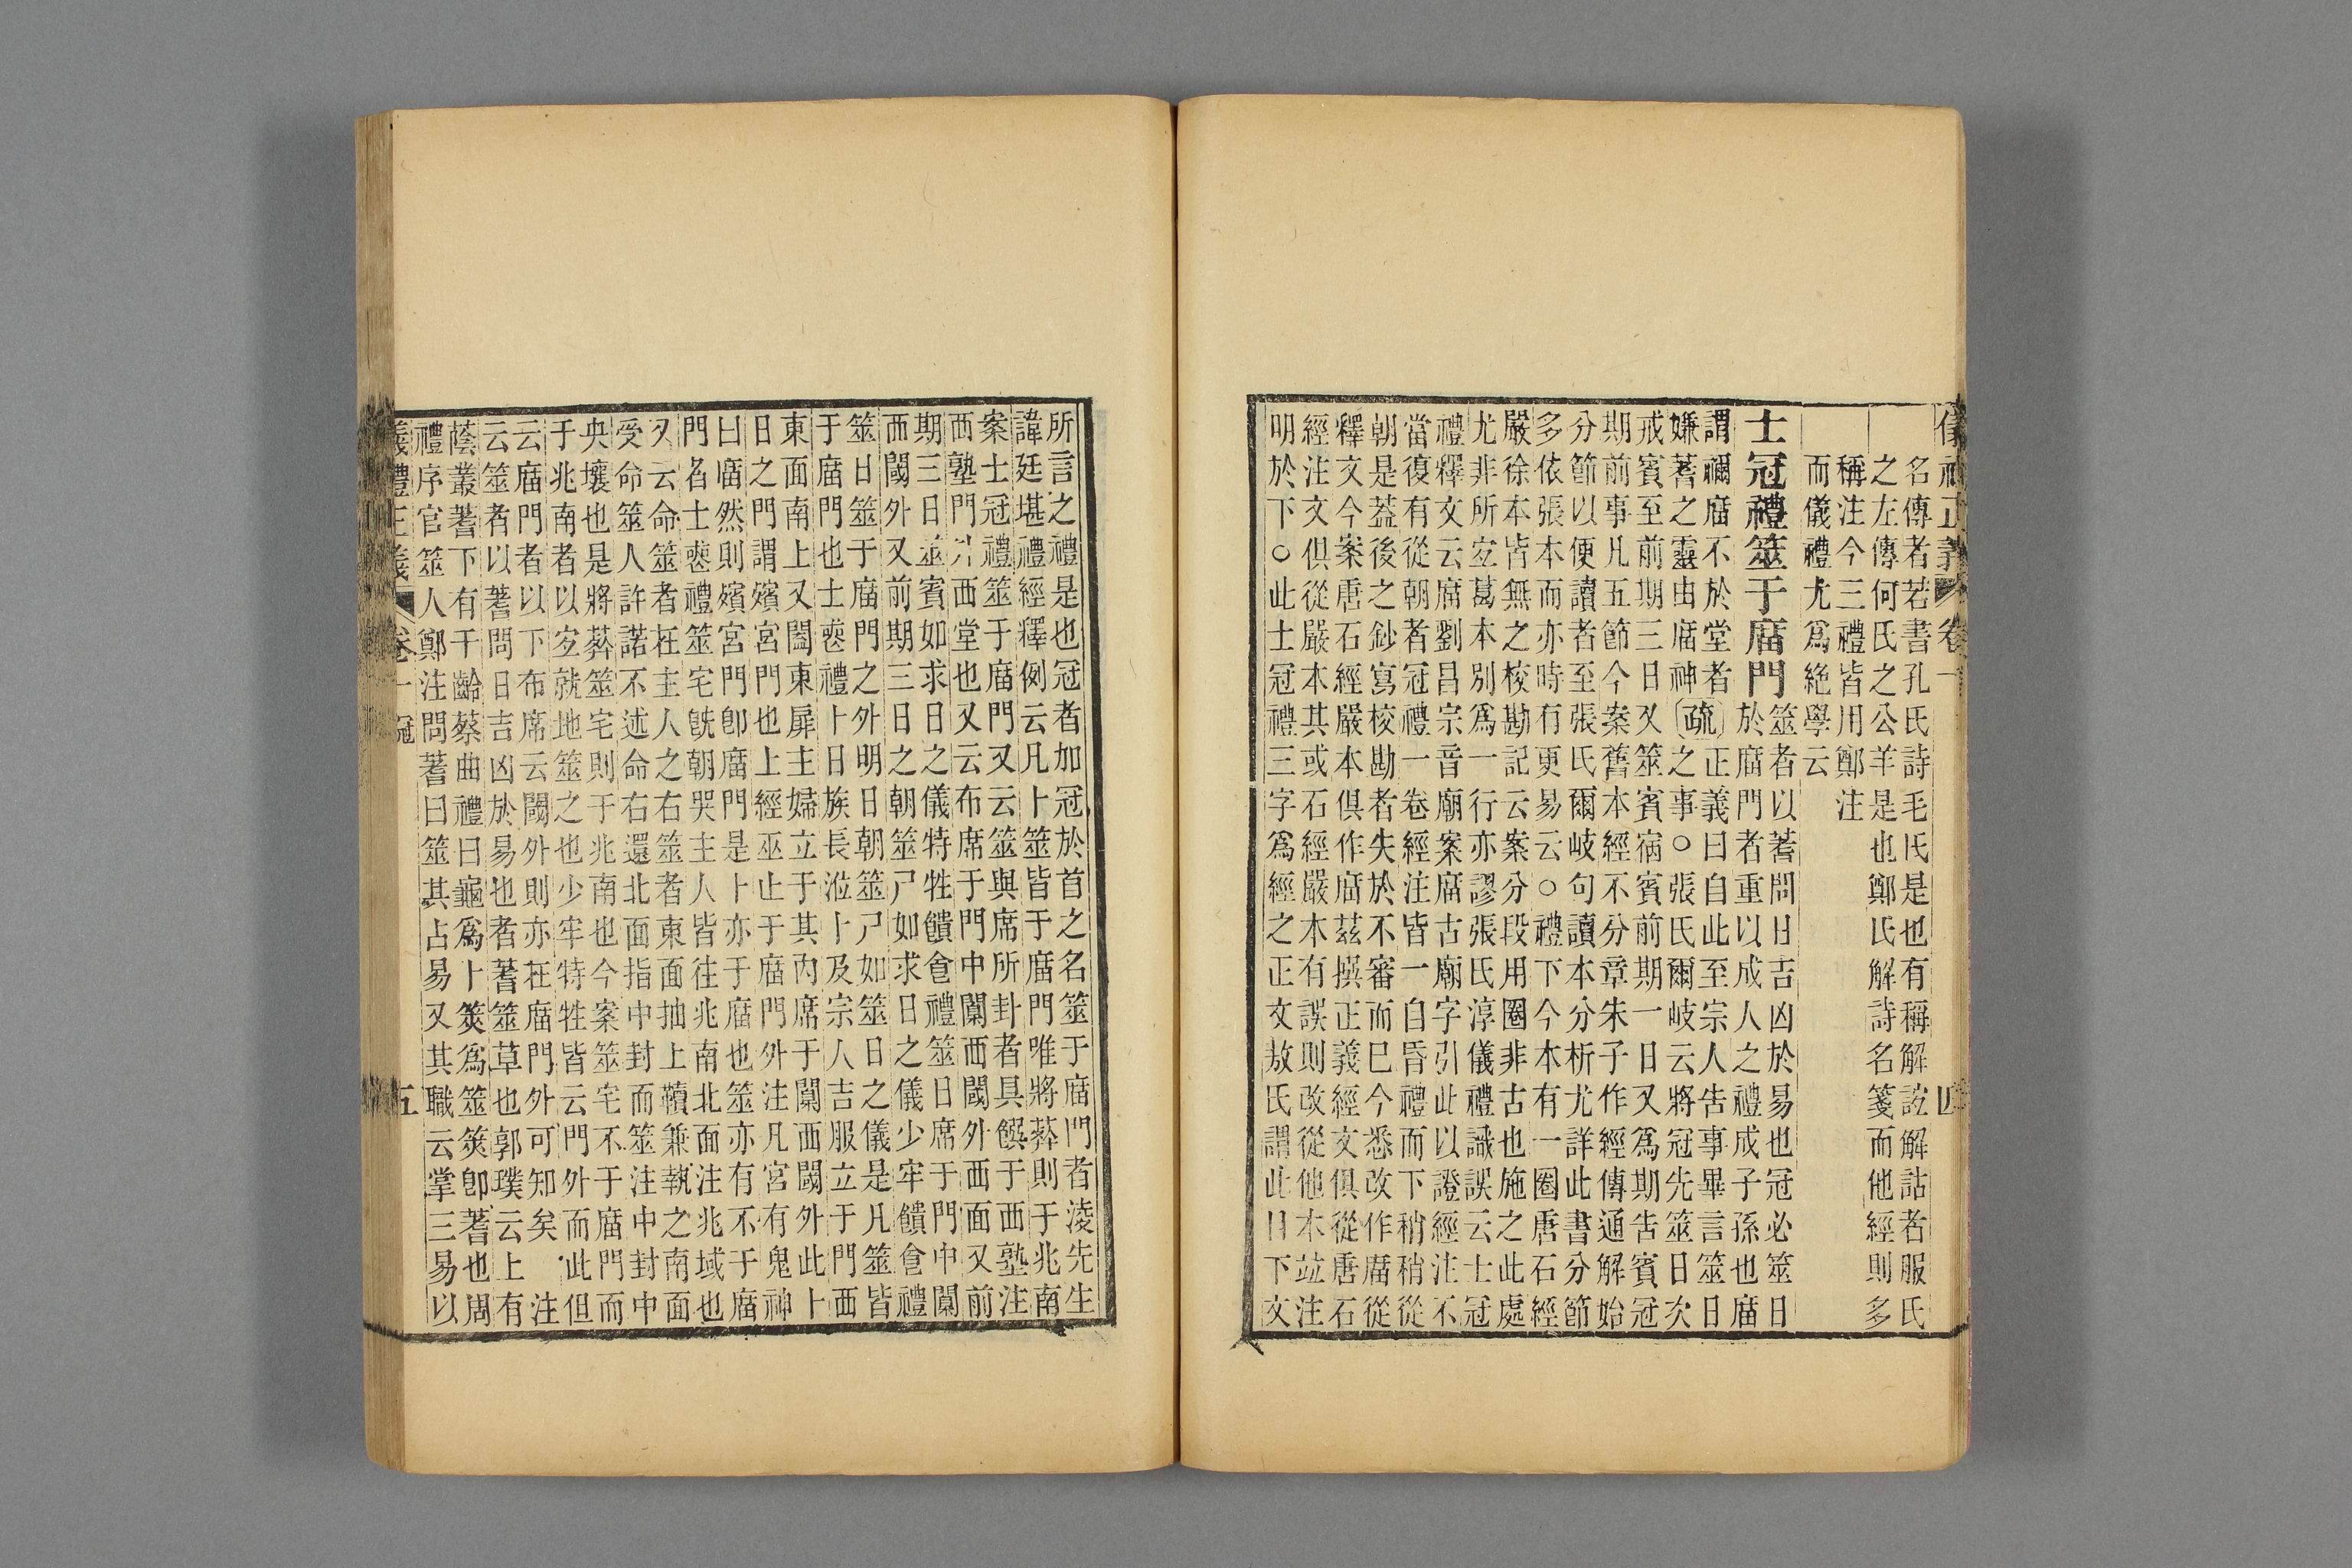 儀禮正義 卷一 四
名傳者若書孔氏詩毛氏是也有稱解詁解詁者服氏
之左傳何氏之公羊是也鄭氏解詩名箋而他經則多
稱注今三禮皆用鄭注
而儀禮尤爲絶學云
士冠禮筮于庿門
筮者以蓍問日吉凶於易也冠必筮日
於庿門者重以成人之禮成子孫也庿
謂禰庿不於堂者
嫌蓍之靈由庿神
疏
正義曰自此至宗人告事畢言筮日
之事○張氏爾岐云將冠先筮日次
戒賓至前期三日又筮賓宿賓前期一日又爲期告賓冠
期前事凡五節今案舊本經不分章朱子作經傳通解始
分節以便讀者至張氏爾岐句讀本分析尤詳此書分節
多依張本而亦時有更易云○禮下今本有一圈唐石經
嚴徐本皆無之校勘記云案分段用圈非古也施之此處
尤非所宜葛本別爲一行亦謬張氏淳儀禮識誤云士冠
禮釋文云庿劉昌宗音廟案庿古廟字引此以證經注不
當復有從朝者冠禮一卷經注皆一自昏禮而下稍稍從
朝是蓋後之鈔寫校勘者失於不審而巳今悉改作庿從
釋文今案唐石經嚴本俱作庿茲撰正義經文俱從唐石
經注文俱從嚴本其或石經嚴本有誤則改從他本竝注
明於下○此士冠禮三字爲經之正文敖氏謂此目下文
所言之禮是也冠者加冠於首之名筮于庿門者淩先生
諱廷堪禮經釋例云凡卜筮皆于庿門唯將葬則于兆南
案士冠禮筮于庿門又云筮與席所卦者具饌于西塾注
西塾門外西堂也又云布席于門中闑西閾外西面又前
期三日筮賓如求日之儀特牲饋食禮筮日席于門中闑
西閾外又前期三日之朝筮尸如求日之儀少牢饋食禮
筮日筮于庿門之外明日朝筮尸如筮日之儀是凡筮皆
于庿門也士喪禮卜日族長涖卜及宗人吉服立于門西
東面南上又闔東扉主婦立于其內席于闑西閾外此卜
日之門謂殯宮門也上經巫止于庿門外注凡宮有鬼神
曰庿然則殯宮門卽庿門是卜亦于庿也筮亦有不于庿
門者士喪禮筮宅旣朝哭主人皆往兆南北面注兆域也
又云命筮者在主人之右筮者東面抽上韇兼執之南面
受命筮人許諾不述命右還北面指中封而筮注中封中
央壤也是將葬筮宅則于兆南也今案筮宅不于庿門而
于兆南者以宅就地筮之也少牢特牲皆云門外而此但
云庿門者以下布席云閾外則亦在庿門外可知矣 注
云筮者以蓍問日吉凶於易也者蓍筮草也郭璞云上有
蔭叢蓍下有千齡蔡曲禮曰龜爲卜筴爲筮筴卽蓍也周
禮序官筮人鄭注問蓍曰筮其占易又其職云掌三易以
儀禮正義 卷一 冠 五